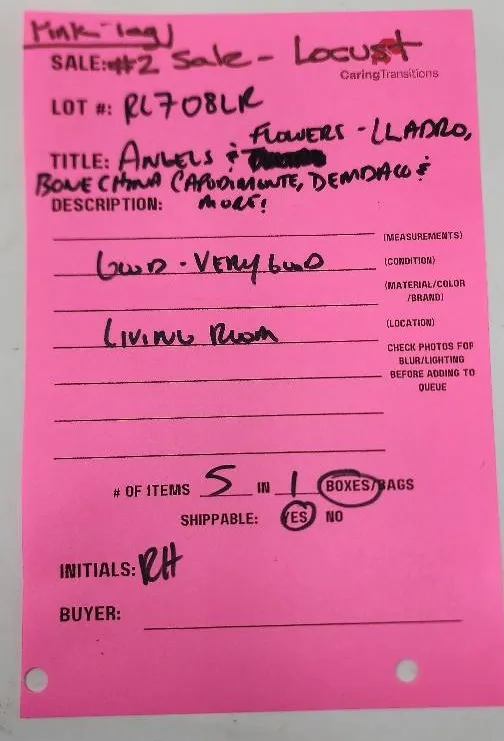 Pink-Tag
SALE: #2 Sale - Locust
CaringTransitions
LOT #: RL708LR
TITLE: ANGELS & FLOWERS - LLADRO,
BONE CHINA CAPODIMONTE, DEMDACO &
DESCRIPTION: MORE!
(MEASUREMENTS)
GOOD - VERY GOOD (CONDITION)
(MATERIAL/COLOR
/BRAND)
LIVING ROOM (LOCATION)
CHECK PHOTOS FOR
BLUR/LIGHTING
BEFORE ADDING TO
QUEUE
# OF ITEMS 5 IN 1 BOXES/BAGS
SHIPPABLE: YES NO
INITIALS: RH
BUYER: